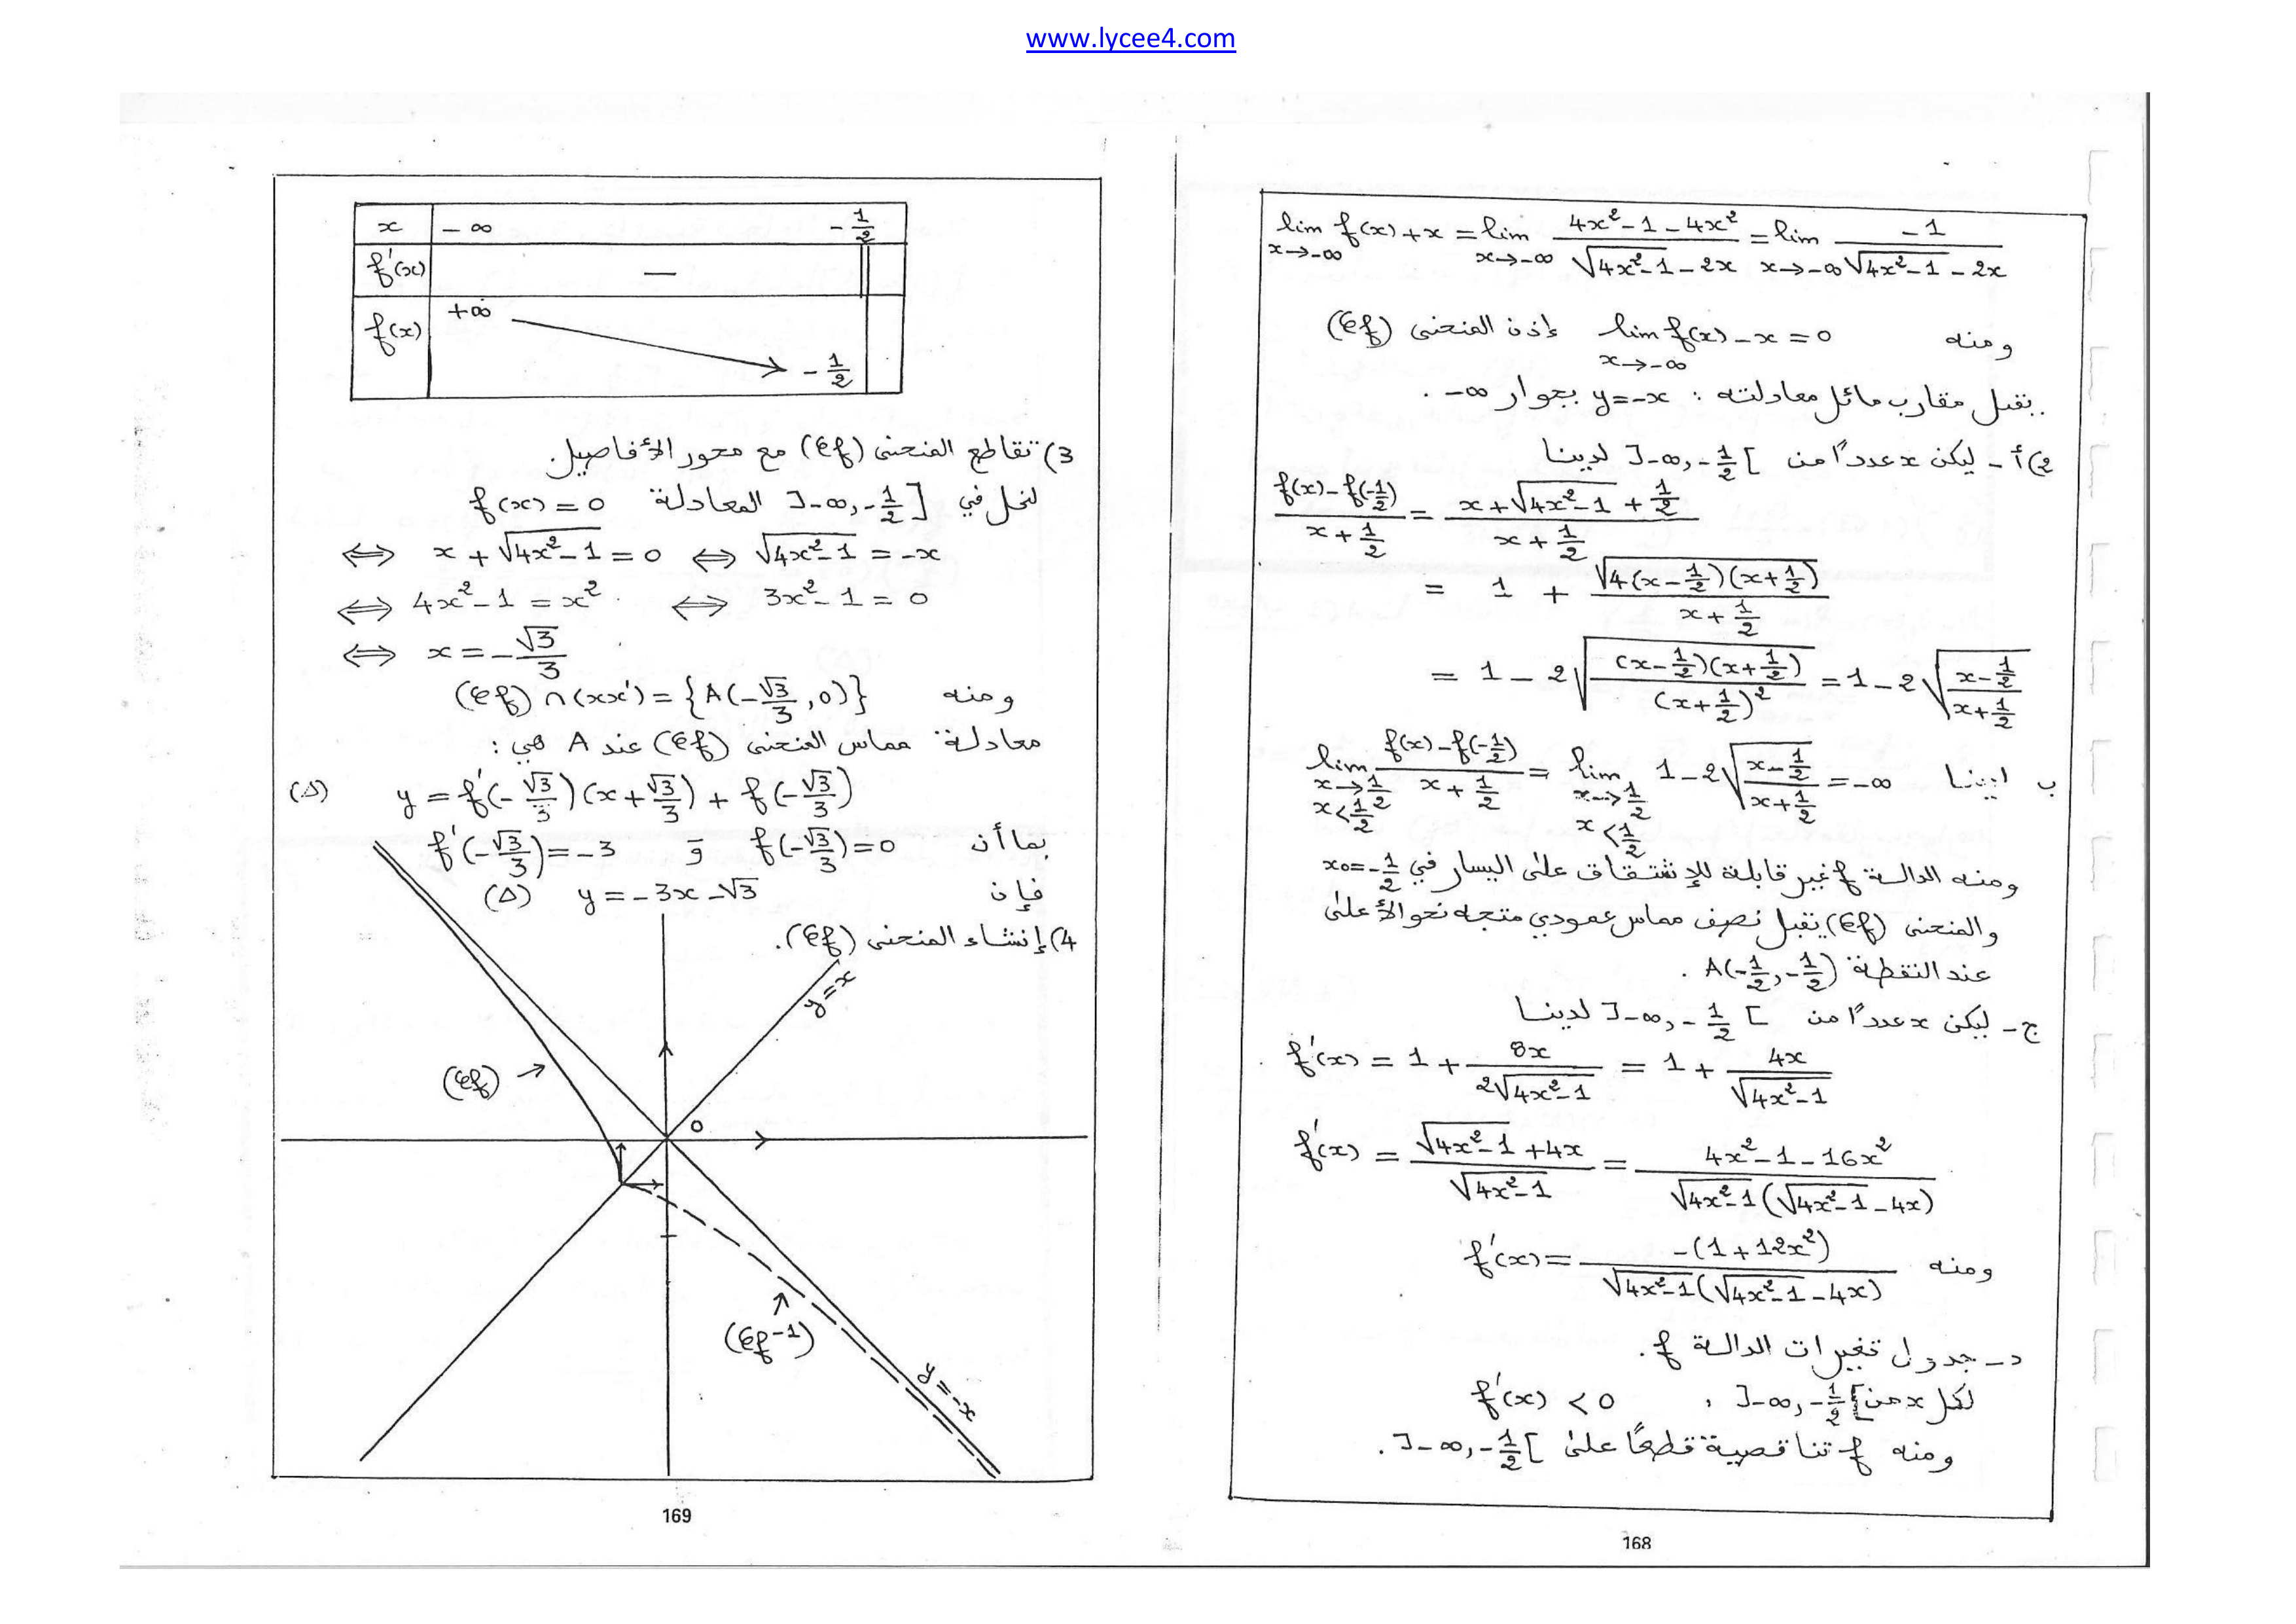 www.lycee4.com
lim_{x→-∞} f(x)+x = lim_{x→-∞} (4x²-1-4x²)/(√(4x²-1)-2x) = lim_{x→-∞} -1/(√(4x²-1)-2x)
ومنه lim_{x→-∞} f(x)-x=0 إذن المنحنى (𝒞f)
يقبل مقارب مائل معادلته : y=-x بجوار -∞.
2)أ- ليكن x عددًا من ]-∞,-1/2[ لدينا
(f(x)-f(-1/2))/(x+1/2) = (x+√(4x²-1)+1/2)/(x+1/2)
= 1 + √(4(x-1/2)(x+1/2))/(x+1/2)
= 1-2√((x-1/2)(x+1/2)/(x+1/2)²) = 1-2√((x-1/2)/(x+1/2))
ب لدينا lim_{x→1/2, x<1/2} (f(x)-f(-1/2))/(x+1/2) = lim_{x→1/2, x<1/2} 1-2√((x-1/2)/(x+1/2)) = -∞
ومنه الدالة f غير قابلة للإشتقاق على اليسار في x0=-1/2
والمنحنى (𝒞f) يقبل نصف مماس عمودي متجه نحو الأعلى
عند النقطة A(-1/2,-1/2).
ج- ليكن x عددًا من ]-∞,-1/2[ لدينا
f'(x) = 1 + 8x/(2√(4x²-1)) = 1 + 4x/√(4x²-1)
f'(x) = (√(4x²-1)+4x)/√(4x²-1) = (4x²-1-16x²)/(√(4x²-1)(√(4x²-1)-4x))
ومنه f'(x) = -(1+12x²)/(√(4x²-1)(√(4x²-1)-4x))
د- جدول تغيرات الدالة f.
لكل x من ]-∞,-1/2[ , f'(x) < 0
ومنه f تناقصية قطعًا على ]-∞,-1/2[.
168
x -∞ -1/2
f'(x) —
f(x) +∞ -1/2
3) تقاطع المنحنى (𝒞f) مع محور الأفاصيل.
لنحل في ]-∞,-1/2] المعادلة f(x)=0
⟺ x+√(4x²-1)=0 ⟺ √(4x²-1)=-x
⟺ 4x²-1=x² ⟺ 3x²-1=0
⟺ x=-√3/3
ومنه (𝒞f)∩(xx')={A(-√3/3,0)}
معادلة مماس المنحنى (𝒞f) عند A هي:
(Δ) y=f'(-√3/3)(x+√3/3)+f(-√3/3)
بما أن f(-√3/3)=0 و f'(-√3/3)=-3
فإن y=-3x-√3 (Δ)
4) إنشاء المنحنى (𝒞f).
y=x
(𝒞f) →
O
(𝒞f-1)
y=-x
169